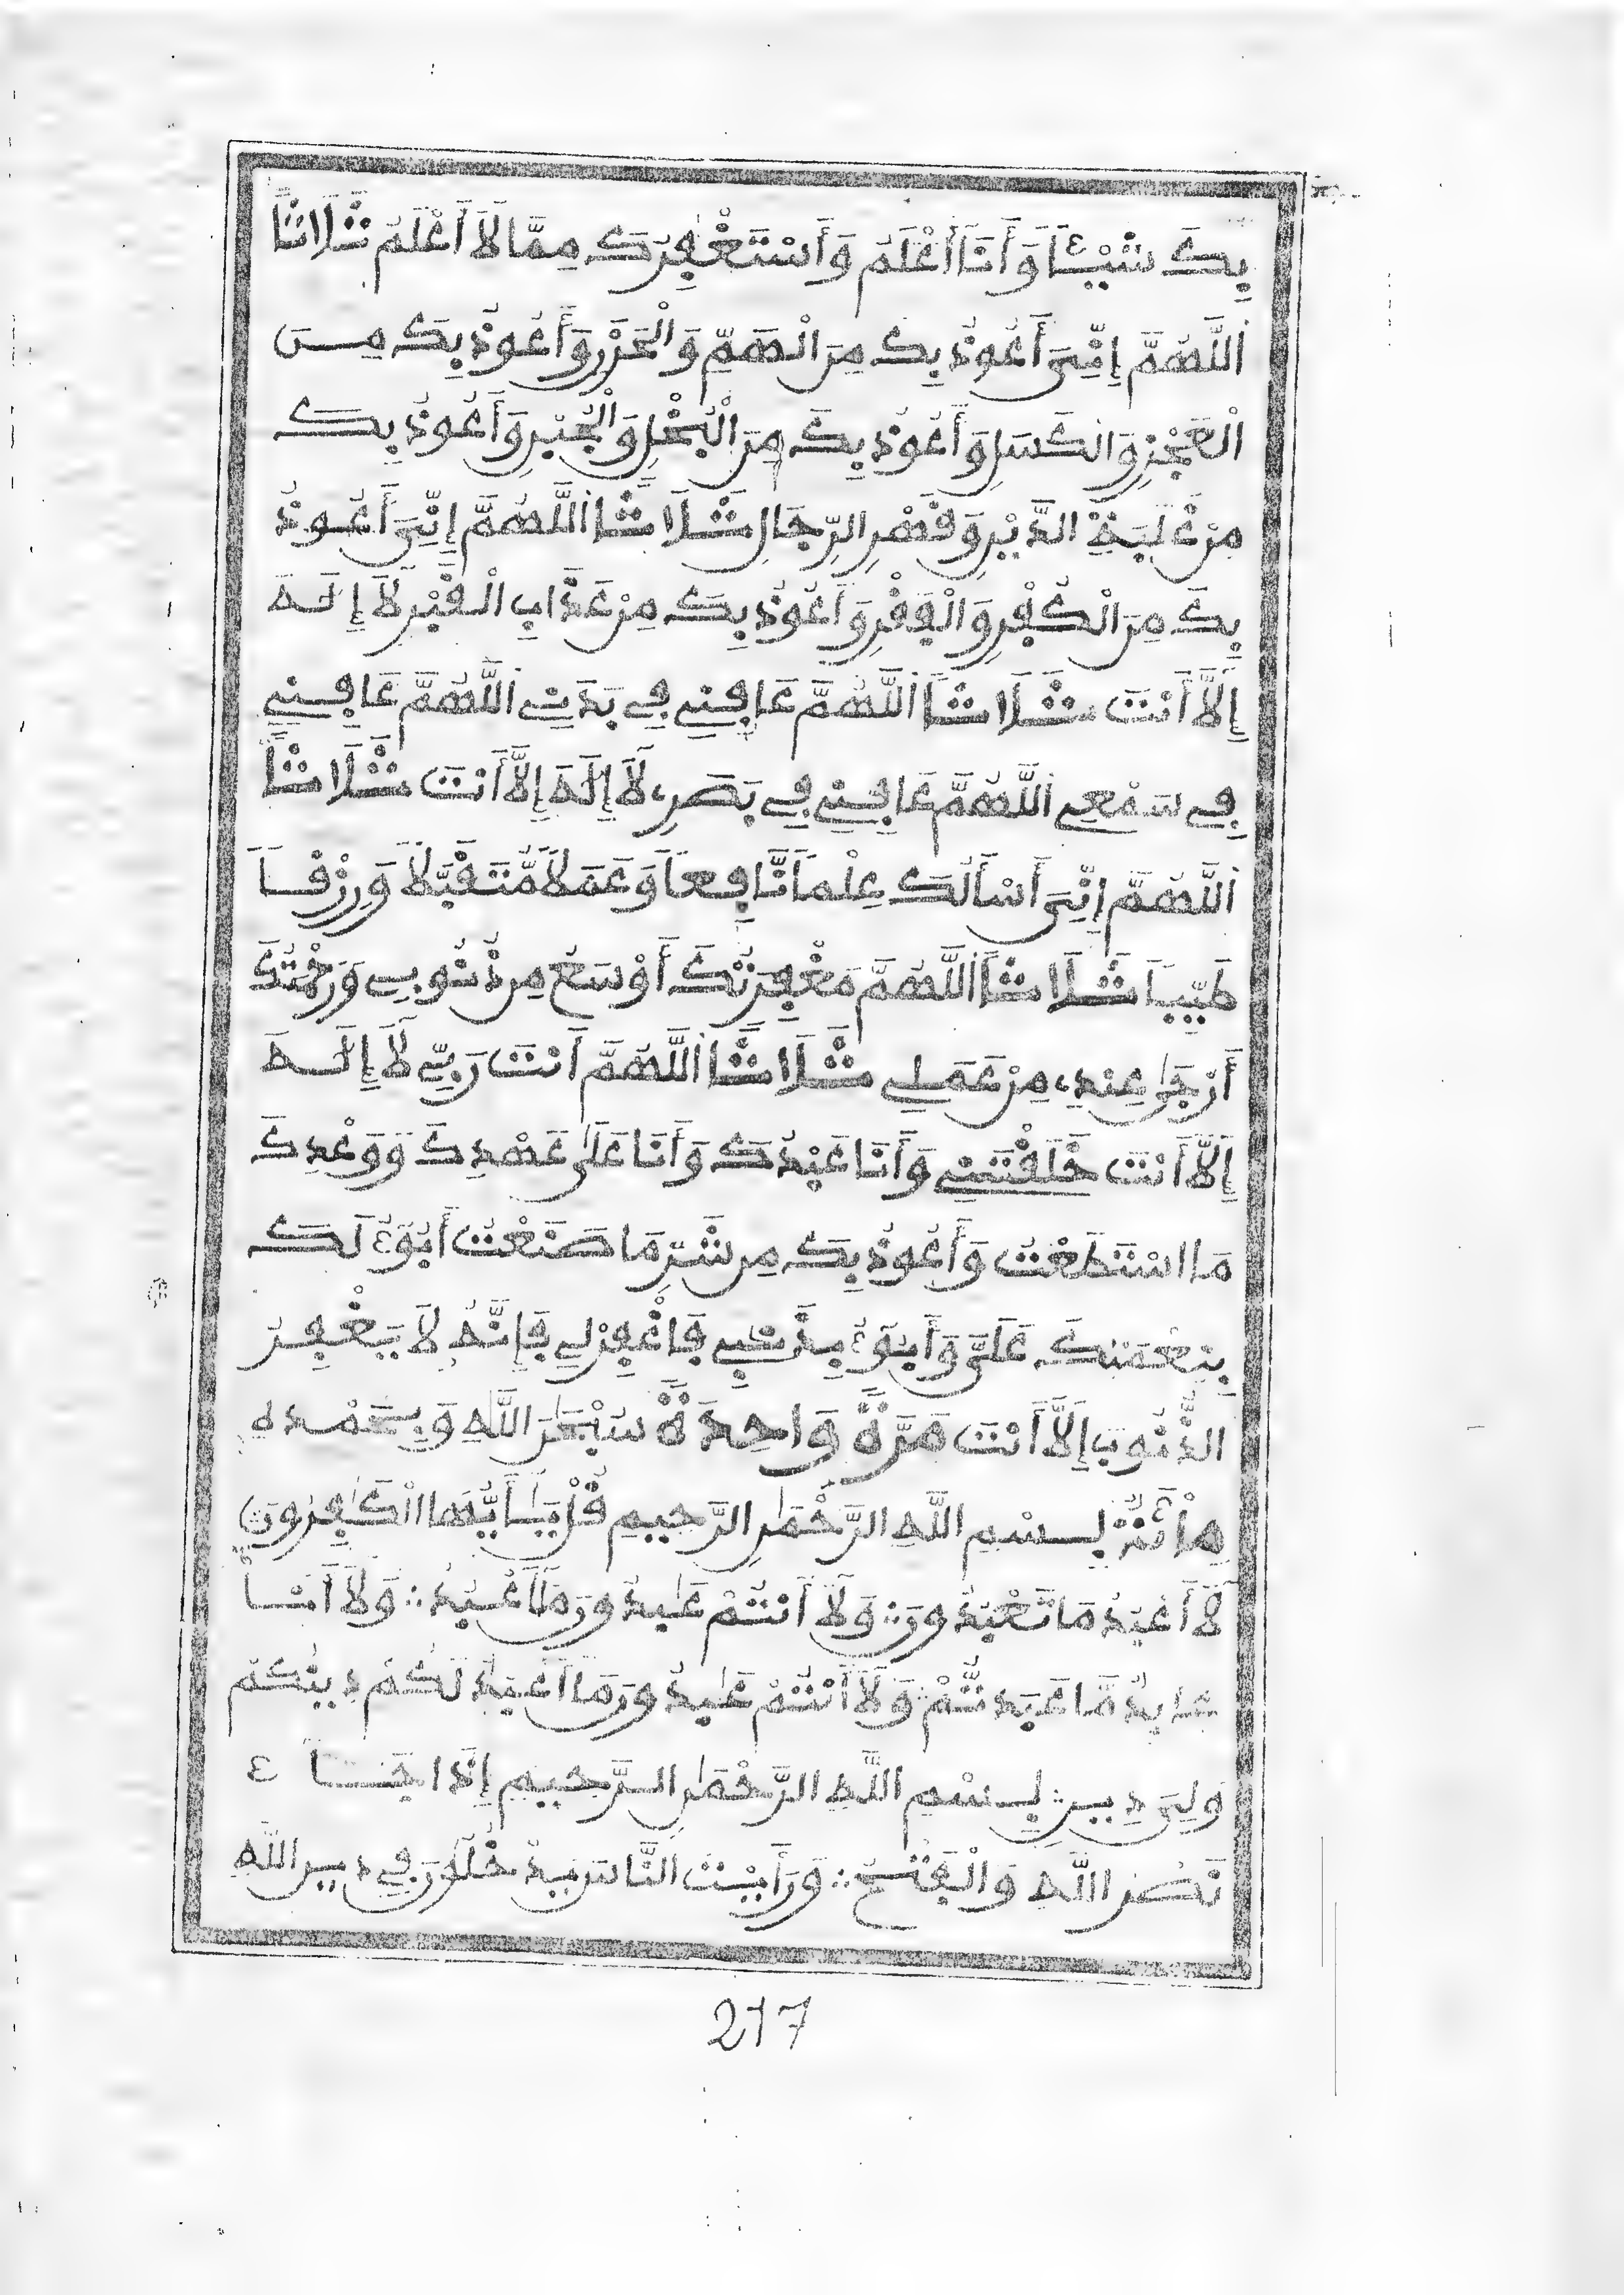 بِكَ شَيْـًٔا وَأَنَا أَعْلَمُ وَأَسْتَغْفِرُكَ مِمَّا لَا أَعْلَمُ ثَلَاثًا
اَللَّهُمَّ إِنِّي أَعُوذُ بِكَ مِنَ الْهَمِّ وَالْحَزَنِ وَأَعُوذُ بِكَ مِنَ
الْعَجْزِ وَالْكَسَلِ وَأَعُوذُ بِكَ مِنَ الْبُخْلِ وَالْجُبْنِ وَأَعُوذُ بِكَ
مِنْ غَلَبَةِ الدَّيْنِ وَقَهْرِ الرِّجَالِ ثَلَاثًا اَللَّهُمَّ إِنِّي أَعُوذُ
بِكَ مِنَ الْكُفْرِ وَالْفَقْرِ وَأَعُوذُ بِكَ مِنْ عَذَابِ الْقَبْرِ لَا إِلَهَ
إِلَّا أَنْتَ ثَلَاثًا اَللَّهُمَّ عَافِنِي فِي بَدَنِي اَللَّهُمَّ عَافِنِي
فِي سَمْعِي اَللَّهُمَّ عَافِنِي فِي بَصَرِي لَا إِلَهَ إِلَّا أَنْتَ ثَلَاثًا
اَللَّهُمَّ إِنِّي أَسْأَلُكَ عِلْمًا نَّافِعًا وَعَمَلًا مُّتَقَبَّلًا وَرِزْقًا
طَيِّبًا ثَلَاثًا اَللَّهُمَّ مَغْفِرَتُكَ أَوْسَعُ مِن ذُنُوبِي وَرَحْمَتُكَ
أَرْجَىٰ عِنْدِي مِنْ عَمَلِي ثَلَاثًا اَللَّهُمَّ أَنْتَ رَبِّي لَا إِلَهَ
إِلَّا أَنْتَ خَلَقْتَنِي وَأَنَا عَبْدُكَ وَأَنَا عَلَىٰ عَهْدِكَ وَوَعْدِكَ
مَا اسْتَطَعْتُ وَأَعُوذُ بِكَ مِن شَرِّ مَا صَنَعْتُ أَبُوءُ لَكَ
بِنِعْمَتِكَ عَلَيَّ وَأَبُوءُ بِذَنْبِي فَاغْفِرْ لِي فَإِنَّهُ لَا يَغْفِرُ
الذُّنُوبَ إِلَّا أَنْتَ مَرَّةً وَاحِدَةً سُبْحَٰنَ اللَّهِ وَبِحَمْدِهِ
مِائَةً بِسْمِ اللَّهِ الرَّحْمَٰنِ الرَّحِيمِ قُلْ يَٰأَيُّهَا الْكَٰفِرُونَ
لَا أَعْبُدُ مَا تَعْبُدُونَ ∴ وَلَا أَنْتُمْ عَٰبِدُونَ مَا أَعْبُدُ ∴ وَلَا أَنَا
عَابِدٌ مَّا عَبَدتُّمْ ∴ وَلَا أَنْتُمْ عَٰبِدُونَ مَا أَعْبُدُ لَكُمْ دِينُكُمْ
وَلِيَ دِينِ ∴ بِسْمِ اللَّهِ الرَّحْمَٰنِ الرَّحِيمِ إِذَا جَاءَ
نَصْرُ اللَّهِ وَالْفَتْحُ ∴ وَرَأَيْتَ النَّاسَ يَدْخُلُونَ فِي دِينِ اللَّهِ
217